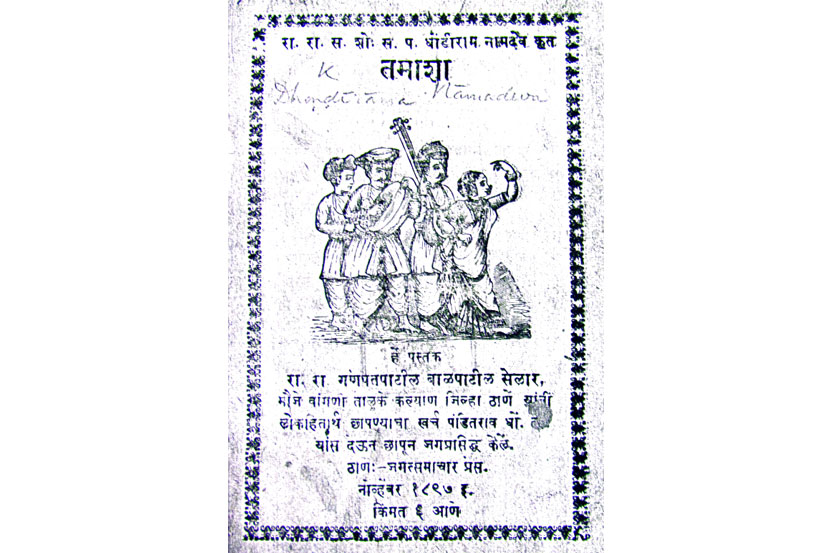 रा. रा. स. शोः स. प. धोंडीराम नामदेव कृत
तमाशा
K
Dhondirama Namadeva
हें पुस्तक
रा. रा. गणपतपाटील बाळपाटील सेलार,
मौजे वांगणी तालुके कल्याण जिल्हा ठाणें यांनीं
लोकहितार्थ छापण्याचा खर्च पंडितराव धों.
यांस देऊन छापून जगप्रसिद्ध केलें.
ठाणः-जगत्समाचार प्रेस.
नोव्हेंबर १८९७ इ.
किंमत ६ आणे